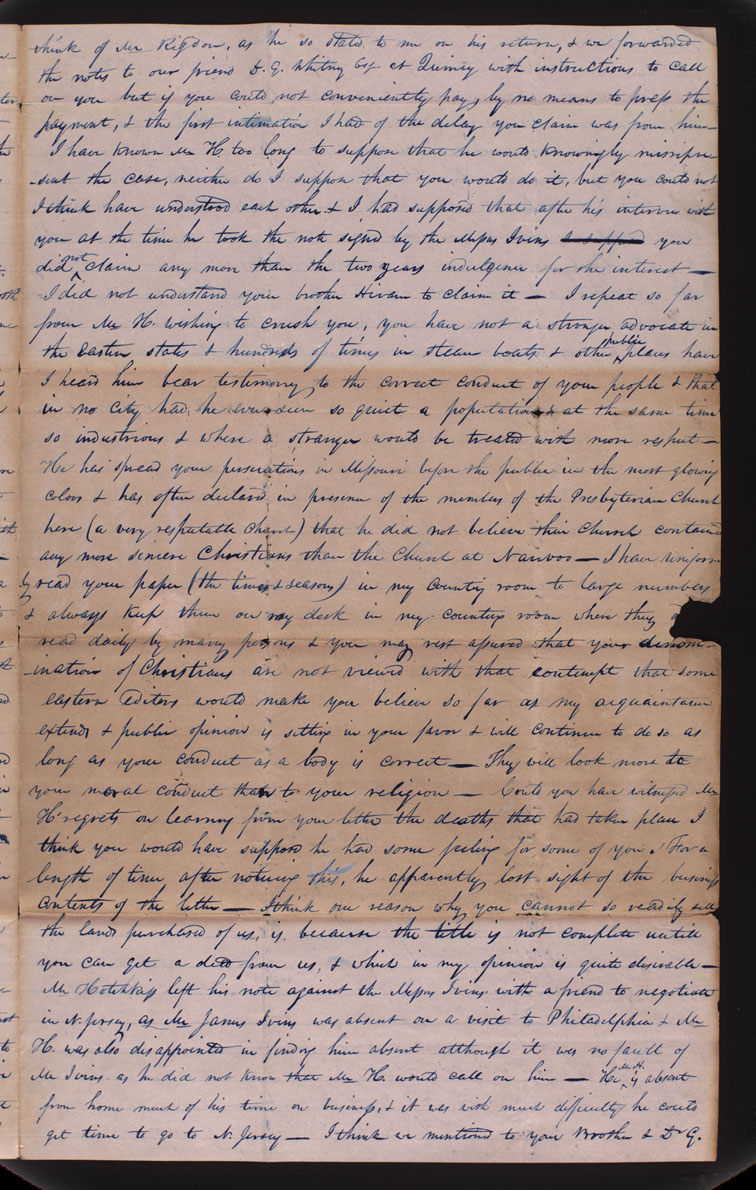 think of Mr Rigdon, as he so stated to me on his return, & we forwarded
the notes to our friend D. G. Whitney Esq at Quincy with instructions to call
on you but if you could not conveniently pay, by no means to press the
payment, & the first intimation I had of the delay you claim was from him—
I have known Mr H. too long to suppose that he would knowingly misrepre-
-sent the case, neither do I suppose that you would do it, but you could not
I think have understood each other & I had supposed that after his interview with
you at the time he took the note signed by the Messrs Ivins you
did not claim any more than the two years indulgence for the interest —
I did not understand your brother Hiram to claim it — I repeat so far
from Mr H. wishing to crush you, you have not a stronger advocate in
the Eastern states & hundreds of times in steam boats & other public places have
I heard him bear testimony to the correct conduct of your people & that
in no city had he ever seen so quiet a population & at the same time
so industrious & where a stranger would be treated with more respect —
He has spread your persecutions in Missouri before the public in the most glowing
colors & has often declared in presence of the members of the Presbyterian Church
here (a very respectable church) that he did not believe their Church contained
any more sincere Christians than the Church at Nauvoo — I have uniform
ly read your paper (the times & seasons) in my counting room to large numbers
& always keep them on my desk in my counting room where they
read daily by many persons & you may rest assured that your denom-
-ination of Christians are not viewed with that contempt that some
eastern Editors would make you believe so far as my acquaintance
extends & public opinion is setting in your favor & will continue to do so as
long as your conduct as a body is correct — They will look more to
your moral conduct than to your religion — Could you have witnessed Mr
H's regrets on learning from your letter the deaths that had taken place I
think you would have supposed he had some feeling for some of you. For a
length of time after noticing this, he apparently lost sight of the business
contents of the letter — I think one reason why you cannot so readily sell
the lands purchased of us, is because the title is not complete untill
you can get a deed from us, & which in my opinion is quite desirable —
Mr Hotchkiss left his note against the Messrs Ivins with a friend to negotiate
in N. Jersey, as Mr James Ivins was absent on a visit to Philadelphia & Mr
H. was also disappointed in finding him absent although it was no fault of
Mr Ivins as he did not know that Mr H. would call on him — He Mr H. is absent
from home much of his time on business, & it was with much difficulty he could
get time to go to N. Jersey — I think we mentioned to your Brother & Dr G.